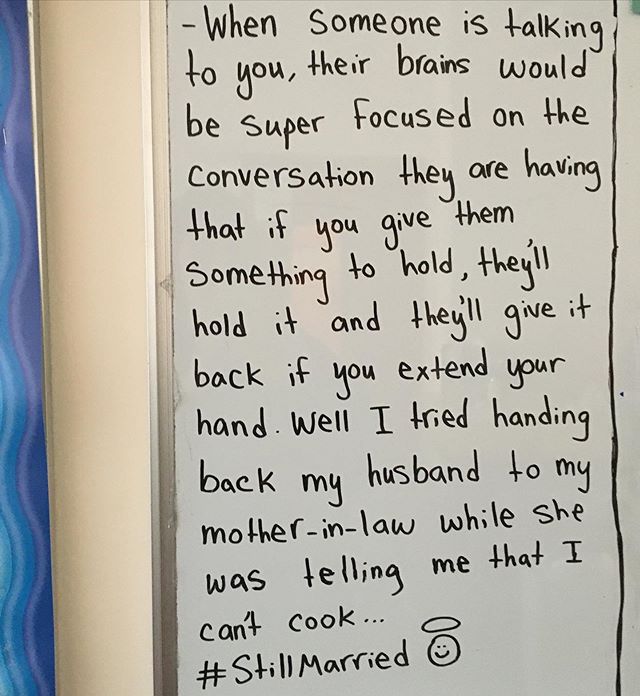 - When someone is talking
to you, their brains would
be super focused on the
conversation they are having
that if you give them
something to hold, they'll
hold it and they'll give it
back if you extend your
hand. Well I tried handing
back my husband to my
mother-in-law while she
was telling me that I
can't cook...
#StillMarried